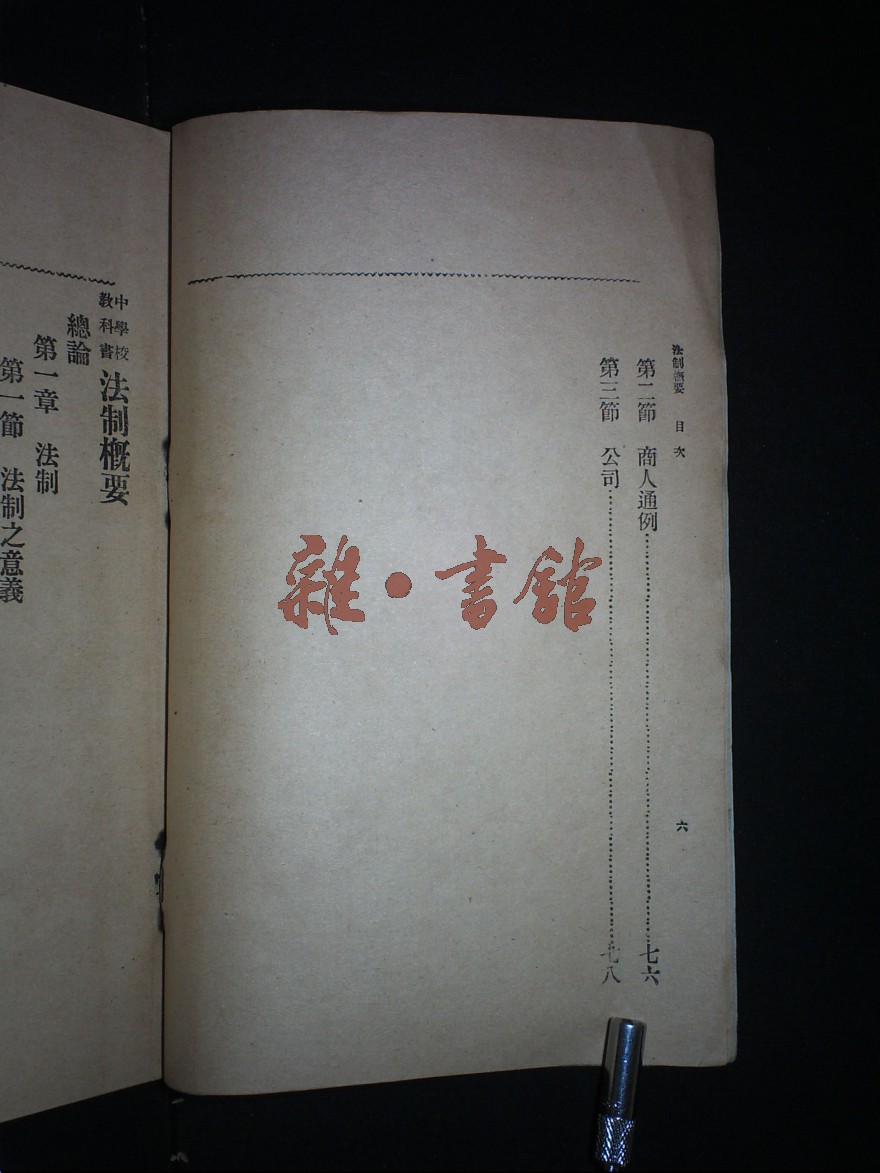 法制概要　目次　六
第二節　商人通例……七六
第三節　公司……七八
雜·書館
中學校
教科書
法制概要
總論
第一章　法制
第一節　法制之意義